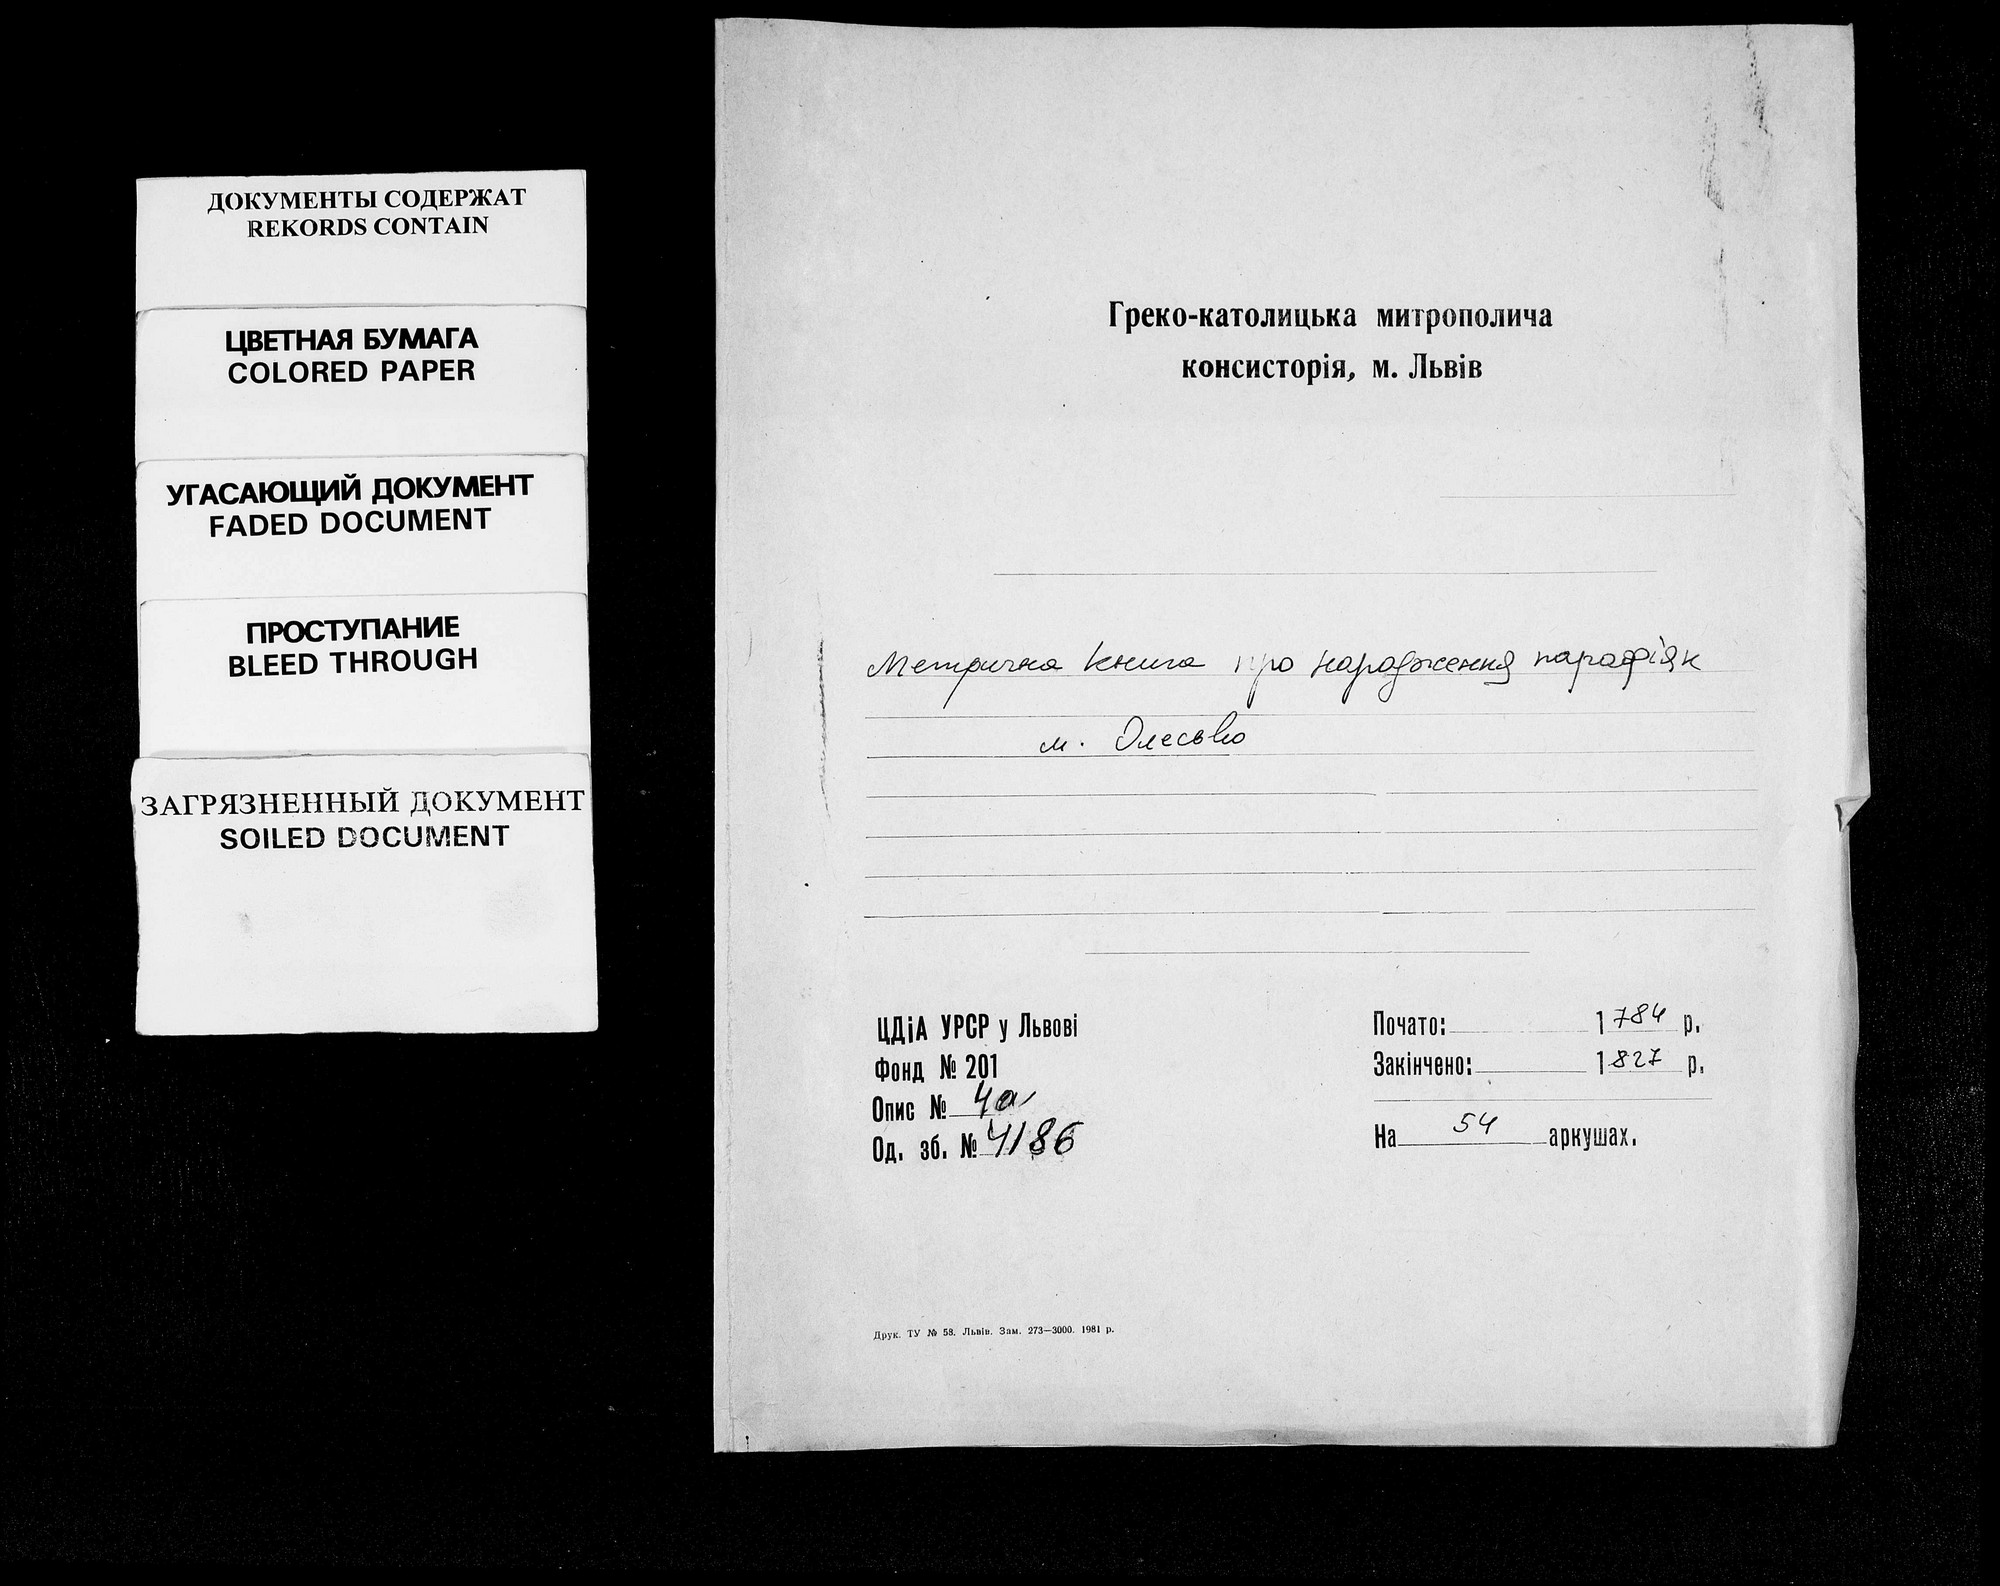 ДОКУМЕНТЫ СОДЕРЖАТ
REKORDS CONTAIN
ЦВЕТНАЯ БУМАГА
COLORED PAPER
УГАСАЮЩИЙ ДОКУМЕНТ
FADED DOCUMENT
ПРОСТУПАНИЕ
BLEED THROUGH
ЗАГРЯЗНЕННЫЙ ДОКУМЕНТ
SOILED DOCUMENT
Греко-католицька митрополича
консисторія, м. Львів
Метрична книга про народження парафіян
м. Олесько
ЦДіА УРСР у Львові
Фонд № 201
Опис № 4а
Од. зб. № 4186
Почато: 1784 р.
Закінчено: 1827 р.
На 54 аркушах.
Друк. ТУ № 58. Львів. Зам. 273—3000. 1981 р.